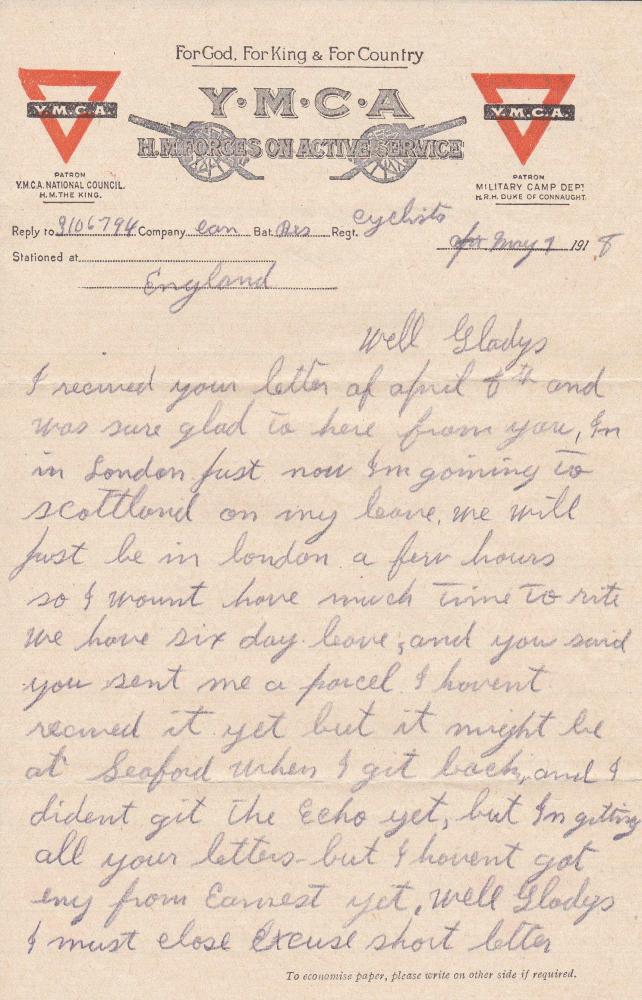 For God, For King & For Country
Y·M·C·A
H.M FORCES ON ACTIVE SERVICE
Y.M.C.A.
PATRON
Y.M.C.A. NATIONAL COUNCIL.
H.M. THE KING.
Y.M.C.A.
PATRON
MILITARY CAMP DEPT
H.R.H. DUKE OF CONNAUGHT.
Reply to 3106794 Company can Bat. Res Regt. cyclists
May 7 1918
Stationed at
England
Well Gladys
I recived your letter of april 8th and
was sure glad to here from you, Im
in London just now Im goining to
scottland on my leave, we will
just be in london a few hours
so I wount have much time to rite
we have six day leave, and you said
you sent me a parcel I havent
recived it yet but it might be
at Seaford when I git back, and I
dident git the Echo yet, but Im gitting
all your letters but I havent got
eny from Earnest yet. Well Gladys
I must close Excuse short letter
To economise paper, please write on other side if required.